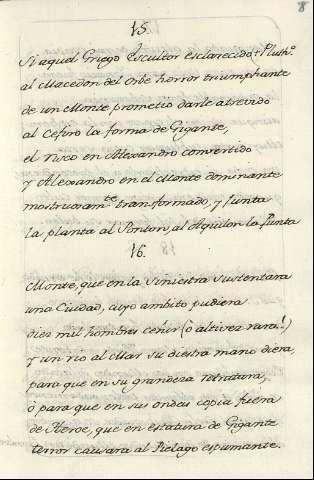 8
15.
Si aquel Griego Escultor esclarecido + Pluth.º
al Macedon del Orbe horror triumphante
de un Monte prometio darle atrevido
al Cefiro la forma de Gigante,
el risco en Alexandro convertido
y Alexandro en el Monte dominante
mostruosam.te transformado, y junta
la planta al Ponton, al Aquilon la Punta
16.
Monte, que en la siniestra sustentara
una Ciudad, cuyo ambito pudiera
diez mil hombres ceñir (o altivez rara!)
y un rio al Mar su diestra mano diera,
para que en su grandeza retratara,
ò para que en sus ondas copia fuera
de Heroe, que en estatura de Gigante
terror causara al Pielago espumante.
18